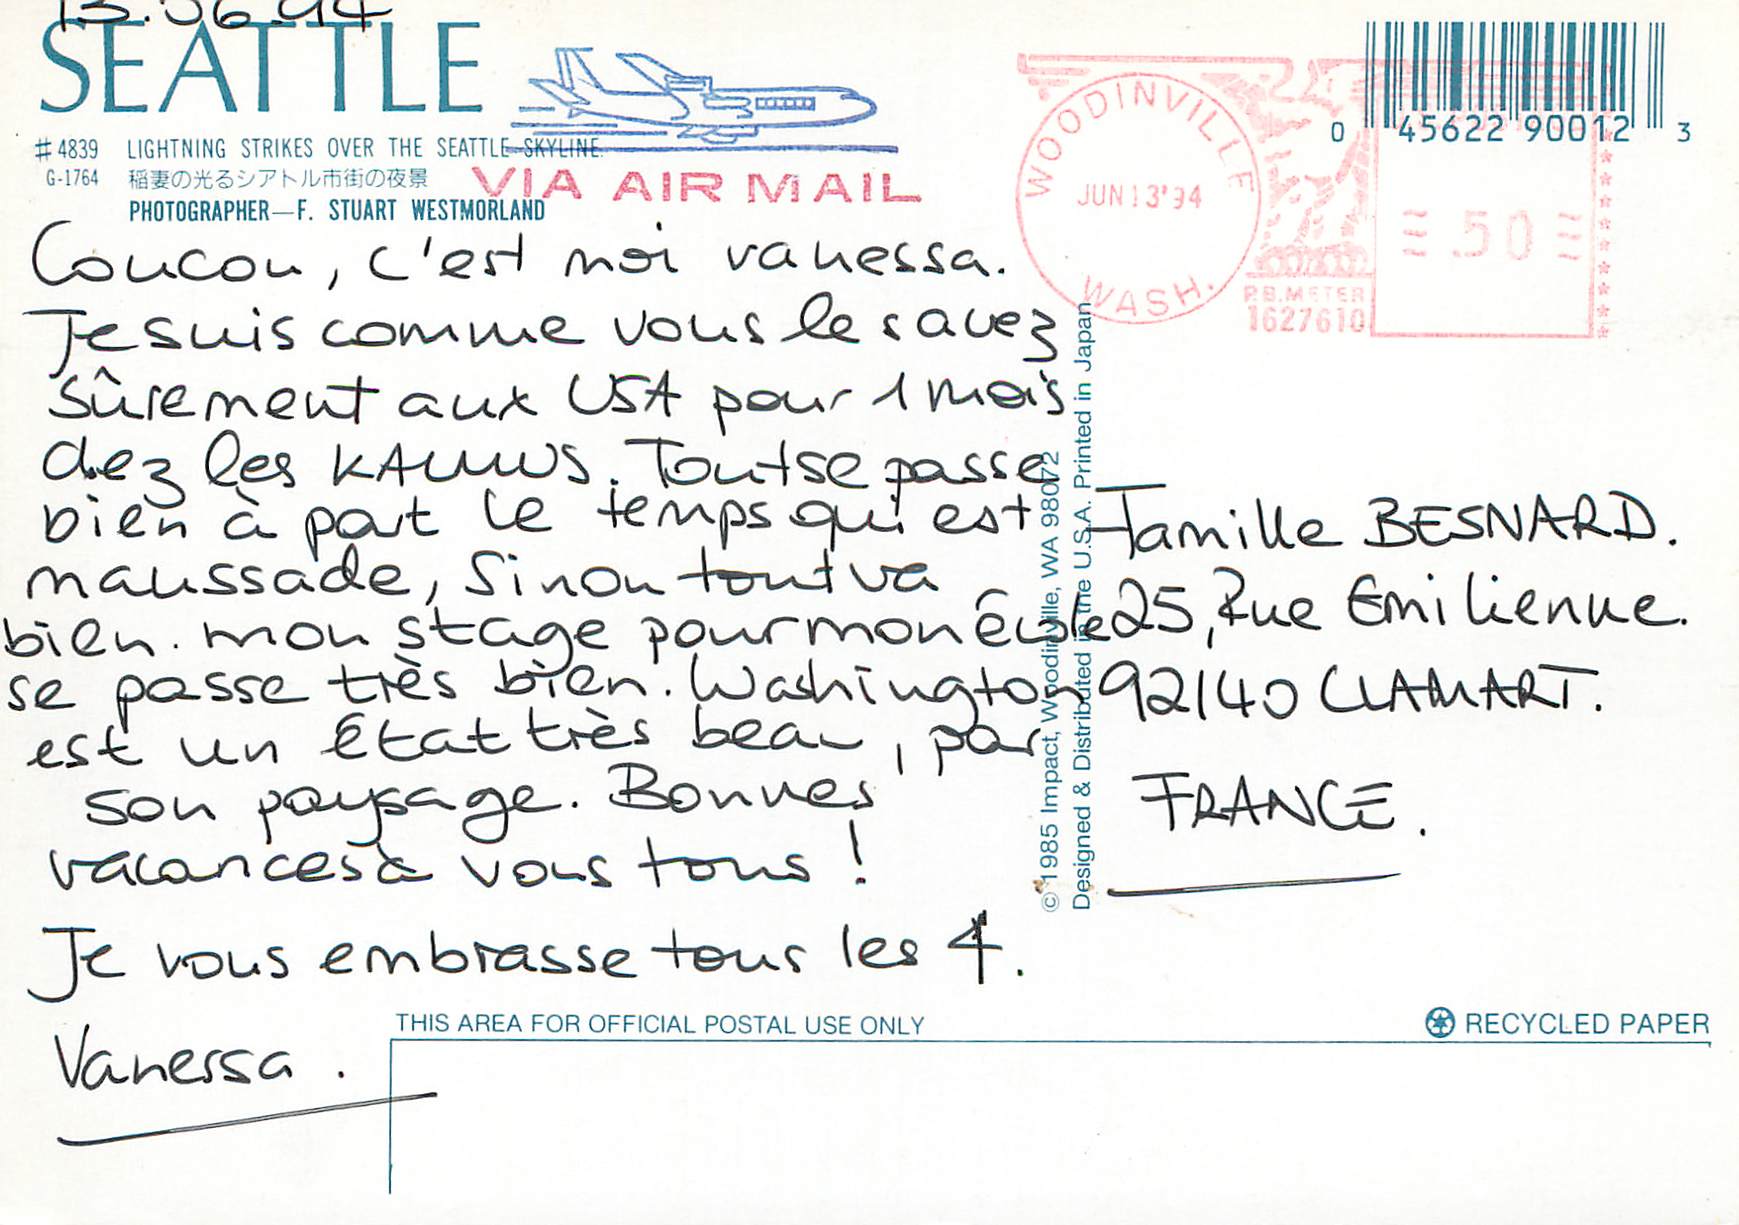 13.06.94
SEATTLE
#4839 LIGHTNING STRIKES OVER THE SEATTLE SKYLINE.
G-1764 稲妻の光るシアトル市街の夜景
PHOTOGRAPHER—F. STUART WESTMORLAND
VIA AIR MAIL
WOODINVILLE
JUN 13'94
WASH.
P.B. METER
1627610
.50
0 45622 90012 3
Coucou, c'est moi vanessa.
Je suis comme vous le savez
sûrement aux USA pour 1 mois
chez les . Tout se passe
bien à part le temps qui est
maussade, Sinon tout va
bien. mon stage pour mon École
se passe très bien. Washington
est un État très beau, par
son paysage. Bonnes
vacances à vous tous !
Je vous embrasse tous les 4.
Vanessa.
© 1985 Impact, Woodinville, WA 98072
Designed & Distributed in the U.S.A. Printed in Japan
Famille BESNARD.
25, Rue Emilienne.
92140 CLAMART.
FRANCE.
THIS AREA FOR OFFICIAL POSTAL USE ONLY
RECYCLED PAPER